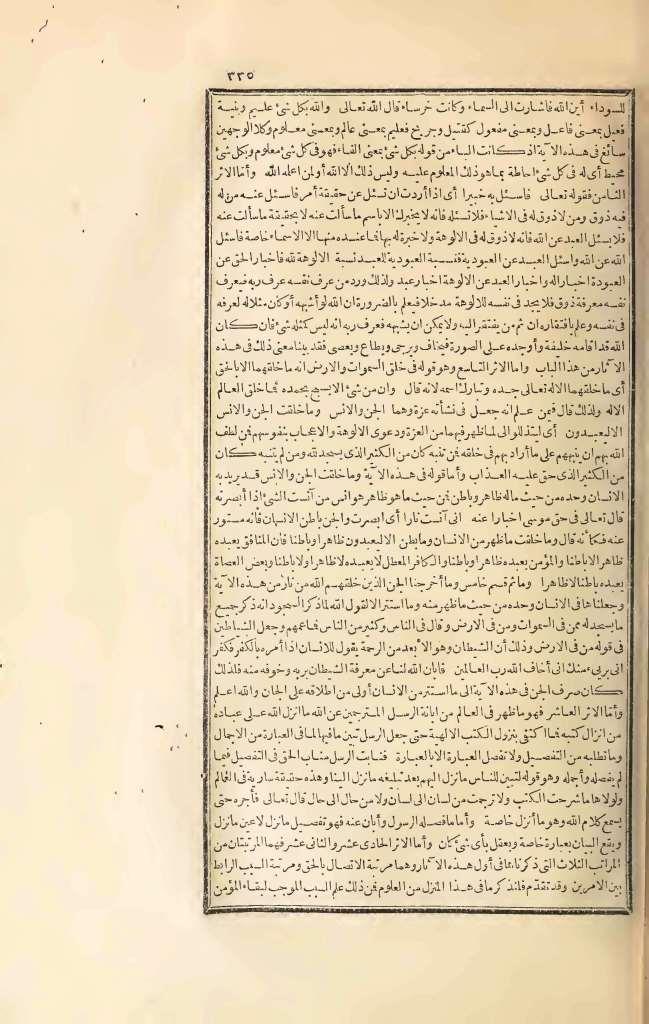 ٣٣٥
للسوداء أين الله فاشارت الى السماء وكانت خرساء قال الله تعالى والله بكل شئ عليم وبنية
فعيل بمعنى فاعل وبمعنى مفعول كقتيل وجريح فعليم بمعنى عالم وبمعنى معلوم وكلا الوجهين
سائغ فى هذه الآية اذ كانت الباء من قوله بكل شئ بمعنى الفاء فهو فى كل شئ معلوم وبكل شئ
محيط أى له فى كل شئ احاطة بما هو ذلك المعلوم عليه وليس ذلك الا الله أو لمن اعلمه الله وأما الاثر
الثامن فقوله تعالى فاسئل به خبيرا أى اذا أردت ان تسئل عن حقيقة أمر فاسئل عنه من له
فيه ذوق ومن لا ذوق له فى الاشياء فلا تسئله فانه لا يخبرك الا باسم ما سألت عنه لا بحقيقة ما سألت عنه
فلا يسئل العبد عن الله فانه لا ذوق له فى الالوهة ولا خبرة له بها فما عنده منها الا الاسماء خاصة فاسئل
الله عن الله واسئل العبد عن العبودية فنسبة العبودية للعبد نسبة الالوهة لله فاخبار الحق عن
العبودة اخبار اله واخبار العبد عن الالوهة اخبار عبد ولذلك ورد من عرف نفسه عرف ربه فيعرف
نفسه معرفة ذوق فلا يجد فى نفسه للالوهة مدخلا فيعلم بالضرورة ان الله لو أشبهه أو كان مثلا له لعرفه
فى نفسه وعلم بافتقاره ان ثم من يفتقر اليه ولا يمكن ان يشبهه فعرف ربه انه ليس كمثله شئ فان كان
الله قد اقامه خليفة وأوجده على الصورة فيخاف ويرجى ويطاع ويعصى فقد بينا معنى ذلك فى هذه
الآثار من هذا الباب واما الاثر التاسع وهو قوله فى خلق السموات والارض انه ما خلقهما الا بالحق
أى ما خلقهما الا له تعالى جده وتبارك اسمه لانه قال وان من شئ الا يسبح بحمده فما خلق العالم
الا له ولذلك قال فيمن علم انه جعل فى نشأته عزة وهما الجن والانس وما خلقت الجن والانس
الا ليعبدون أى ليتذللوا الى لما ظهر فيهما من العزة ودعوى الالوهة والاعجاب بنفوسهم فمن لطف
الله بهم ان ينبههم على ما أراد بهم فى خلقه فمن تنبه كان من الكثير الذى يسجد لله ومن لم يتنبه كان
من الكثير الذى حق عليه العذاب وأما قوله فى هذه الآية وما خلقت الجن والانس قد يريد به
الانسان وحده من حيث ما له ظاهر وباطن فمن حيث ما هو ظاهر هو انس من آنست الشئ اذا أبصرته
قال تعالى فى حق موسى اخبارا عنه انى آنست نارا أى ابصرت والجن باطن الانسان فانه مستور
عنه فكأنه قال وما خلقت ما ظهر من الانسان وما بطن الا ليعبدون ظاهرا وباطنا فان المنافق يعبده
ظاهرا لا باطنا والمؤمن يعبده ظاهرا وباطنا والكافر المعطل لا يعبده لا ظاهرا ولا باطنا وبعض العصاة
يعبده باطنا لا ظاهرا وما ثم قسم خامس وما أخرجنا الجن الذين خلقهم الله من نار من هذه الآية
وجعلناها فى الانسان وحده من حيث ما ظهر منه وما استتر الا لقول الله لما ذكر السجود انه ذكر جميع
ما يسجد له ممن فى السموات ومن فى الارض وقال فى الناس وكثير من الناس فما عمهم وجعل الشياطين
فى قوله من فى الارض وذلك أن الشيطان وهو الابعد من الرحمة يقول للانسان اذا أمره بالكفر فكفر
انى برىء منك انى أخاف الله رب العالمين فابان الله لنا عن معرفة الشيطان بربه وخوفه منه فلذلك
كان صرف الجن فى هذه الآية الى ما استتر من الانسان أولى من اطلاقه على الجان والله اعلم
وأما الاثر العاشر فهو ما ظهر فى العالم من ابانة الرسل المترجمين عن الله ما انزل الله على عباده
من انزال كتبه فما اكتفى بنزول الكتب الالهية حتى جعل الرسل تبين ما فيها لما فى العبارة من الاجمال
وما تطلبه من التفصيل ولا تفصل العبارة الا بالعبارة فنابت الرسل مناب الحق فى التفصيل فيما
لم يفصله وأجمله وهو قوله لتبين للناس ما نزل اليهم بعد تبليغه ما نزل الينا وهذه حقيقة سارية فى العالم
ولولاها ما شرحت الكتب ولا ترجمت من لسان الى لسان ولا من حال الى حال قال تعالى فأجره حتى
يسمع كلام الله وهو ما أنزل خاصة وأما ما فصله الرسول وأبان عنه فهو تفصيل ما نزل لا عين ما نزل
ويقع البيان بعبارة خاصة ويعقل بأى شئ كان وأما الاثر الحادى عشر والثانى عشر فهما المرتبتان من
المراتب الثلاث التى ذكرناها فى أول هذه الآثار وهما مرتبة الاتصال بالحق ومرتبة السبب الرابط
بين الامرين وقد تقدم فلنذكر ما فى هذا المنزل من العلوم فمن ذلك علم السبب الموجب لبقاء المؤمن